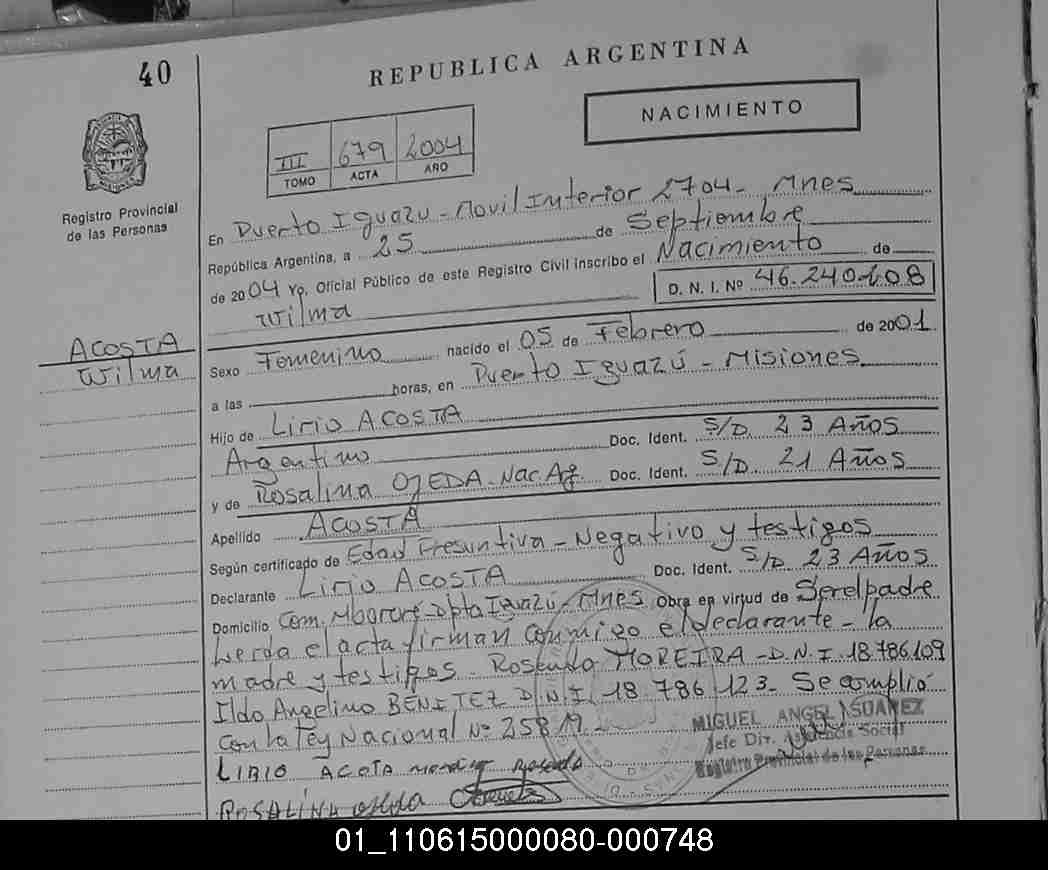 40
REPUBLICA ARGENTINA
NACIMIENTO
III 679 2004
TOMO ACTA AÑO
Registro Provincial
de las Personas
En Puerto Iguazú - Movil Interior 2704 - Mnes
República Argentina, a 25 de Septiembre
de 2004 Yo, Oficial Público de este Registro Civil inscribo el Nacimiento de
Wilma D. N. I. Nº 46.240.108
ACOSTA
Wilma
Sexo Femenino nacido el 05 de Febrero de 2001
a las horas, en Puerto Iguazú - Misiones
Hijo de Lirio ACOSTA
Argentino Doc. Ident. S/D. 23 Años
y de Rosalina OJEDA - Nac. Arg. Doc. Ident. S/D. 21 Años
Apellido ACOSTA
Según certificado de Edad Presuntiva - Negativo y testigos
Declarante Lirio ACOSTA Doc. Ident. S/D 23 Años
Domicilio Com. Mbororé - Dpto Iguazú - Mnes Obra en virtud de Ser el padre
Leida el acta firman conmigo el declarante - la
madre y testigos - Rosendo MOREIRA - D.N.I 18.786.109
Ildo Angelino BENITEZ D.N.I. 18.786.123 - Se complió
con la Ley Nacional Nº 25819.-
MIGUEL ANGEL SUAREZ
Jefe Dir. Asistencia Social
Registro Provincial de las Personas
LIRIO ACOTA
ROSALINA
01_110615000080-000748